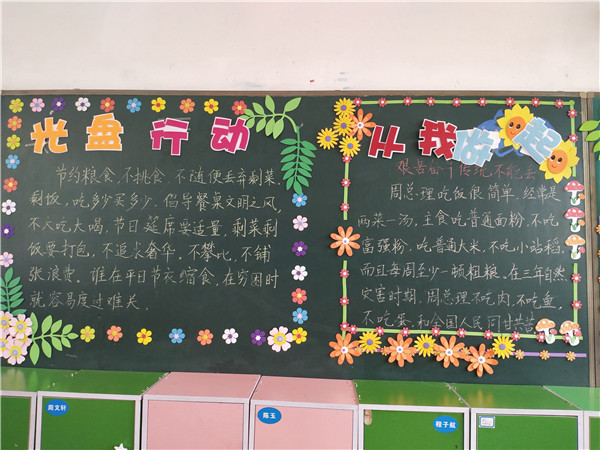 光盘行动
节约粮食,不挑食 不随便丢弃剩菜,
剩饭,吃多少买多少,倡导餐桌文明之风,
不大吃大喝,节日延席要适量,剩菜剩
饭要打包,不追求奢华,不攀比,不铺
张浪费。谁在平日节衣缩食,在穷困时
就容易度过难关.
从我做起
艰苦奋斗传统不能丢
周总理吃饭很简单,经常是
两菜一汤,主食吃普通面粉,不吃
富强粉,吃普通大米,不吃小站稻,
而且每周至少一顿粗粮,在三年自然
灾害时期,周总理不吃肉,不吃鱼,
不吃蛋,和全国人民同甘共苦
周文轩
陈玉
程子航